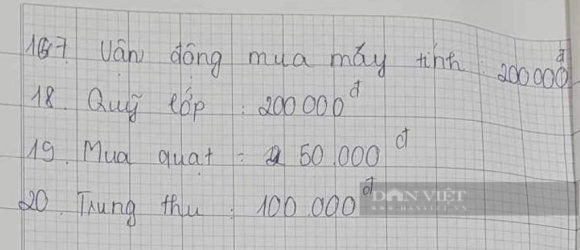 167 Vận động mua máy tính : 200 000đ
18. Quỹ lớp : 200 000đ
19. Mua quạt = 50.000 đ
20. Trung thu : 100 000đ
DÂN VIỆT